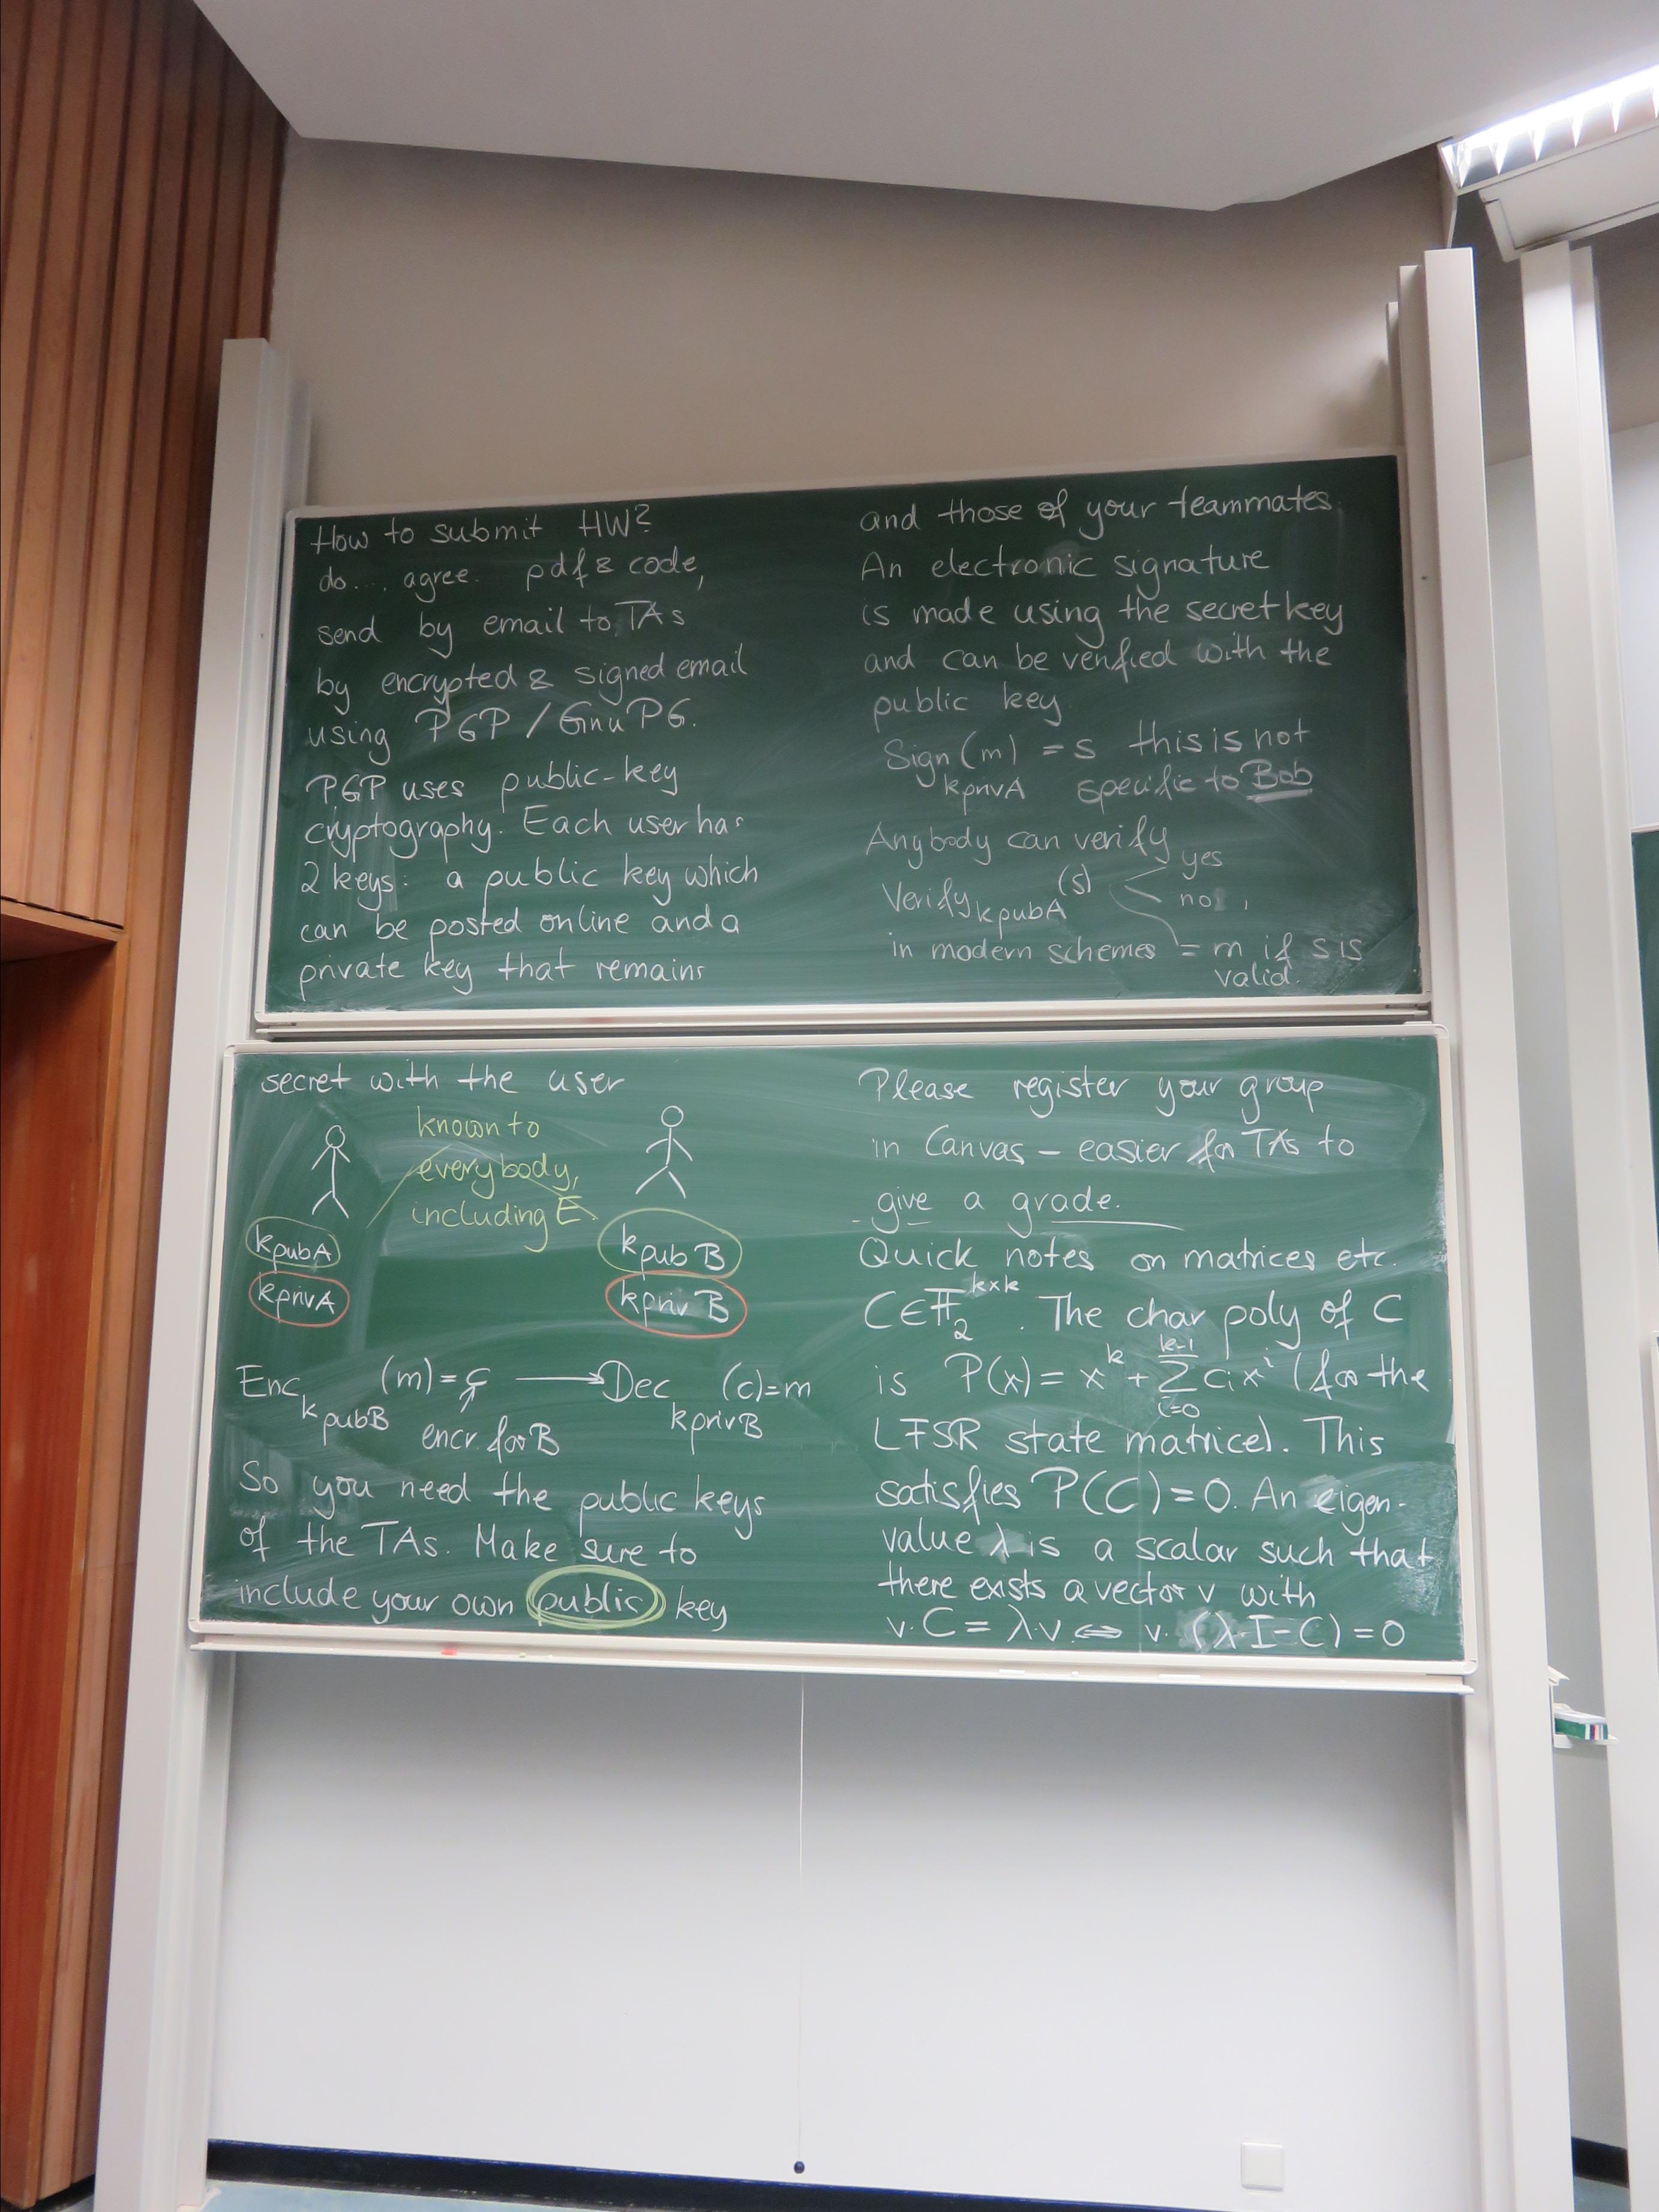 How to submit HW?
do... agree. pdf & code,
send by email to TAs
by encrypted & signed email
using PGP / GnuPG.
PGP uses public-key
cryptography. Each user has
2 keys: a public key which
can be posted online and a
private key that remains
secret with the user
known to
everybody,
including E.
kpubA
kprivA
kpubB
kprivB
Enc kpubB (m) = c → Dec kprivB (c) = m
encr. for B
So you need the public keys
of the TAs. Make sure to
include your own public key
and those of your teammates.
An electronic signature
is made using the secret key
and can be verified with the
public key
Sign kprivA (m) = s this is not
specific to Bob
Anybody can verify
Verify kpubA (s) yes
no,
in modern schemes = m if s is
valid.
Please register your group
in Canvas – easier for TAs to
give a grade.
Quick notes on matrices etc.
C∈𝔽₂^{k×k}. The char poly of C
is P(x) = x^k + Σ_{i=0}^{k-1} c_i x^i (for the
LFSR state matrice). This
satisfies P(C) = 0. An eigen-
value λ is a scalar such that
there exists a vector v with
v·C = λ·v ⇔ v·(λ·I−C) = 0